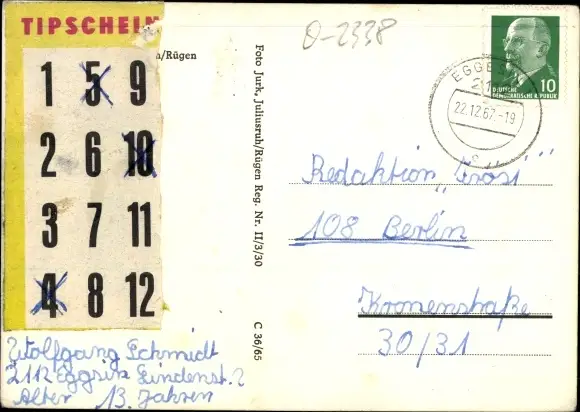 TIPSCHEIN
1 5 9
2 6 10
3 7 11
4 8 12
/Rügen
Foto Jurk, Juliusruh/Rügen Reg. Nr. II/3/30
C 36/65
0-2338
10
DEUTSCHE
DEMOKRATISCHE REPUBLIK
EGGES
22.12.67-19
Redaktion "Frösi"
108 Berlin
Kronenstraße
30/31
Wolfgang Schmidt
2112 Eggsin Lindenst. 2
Alter 13. Jahren